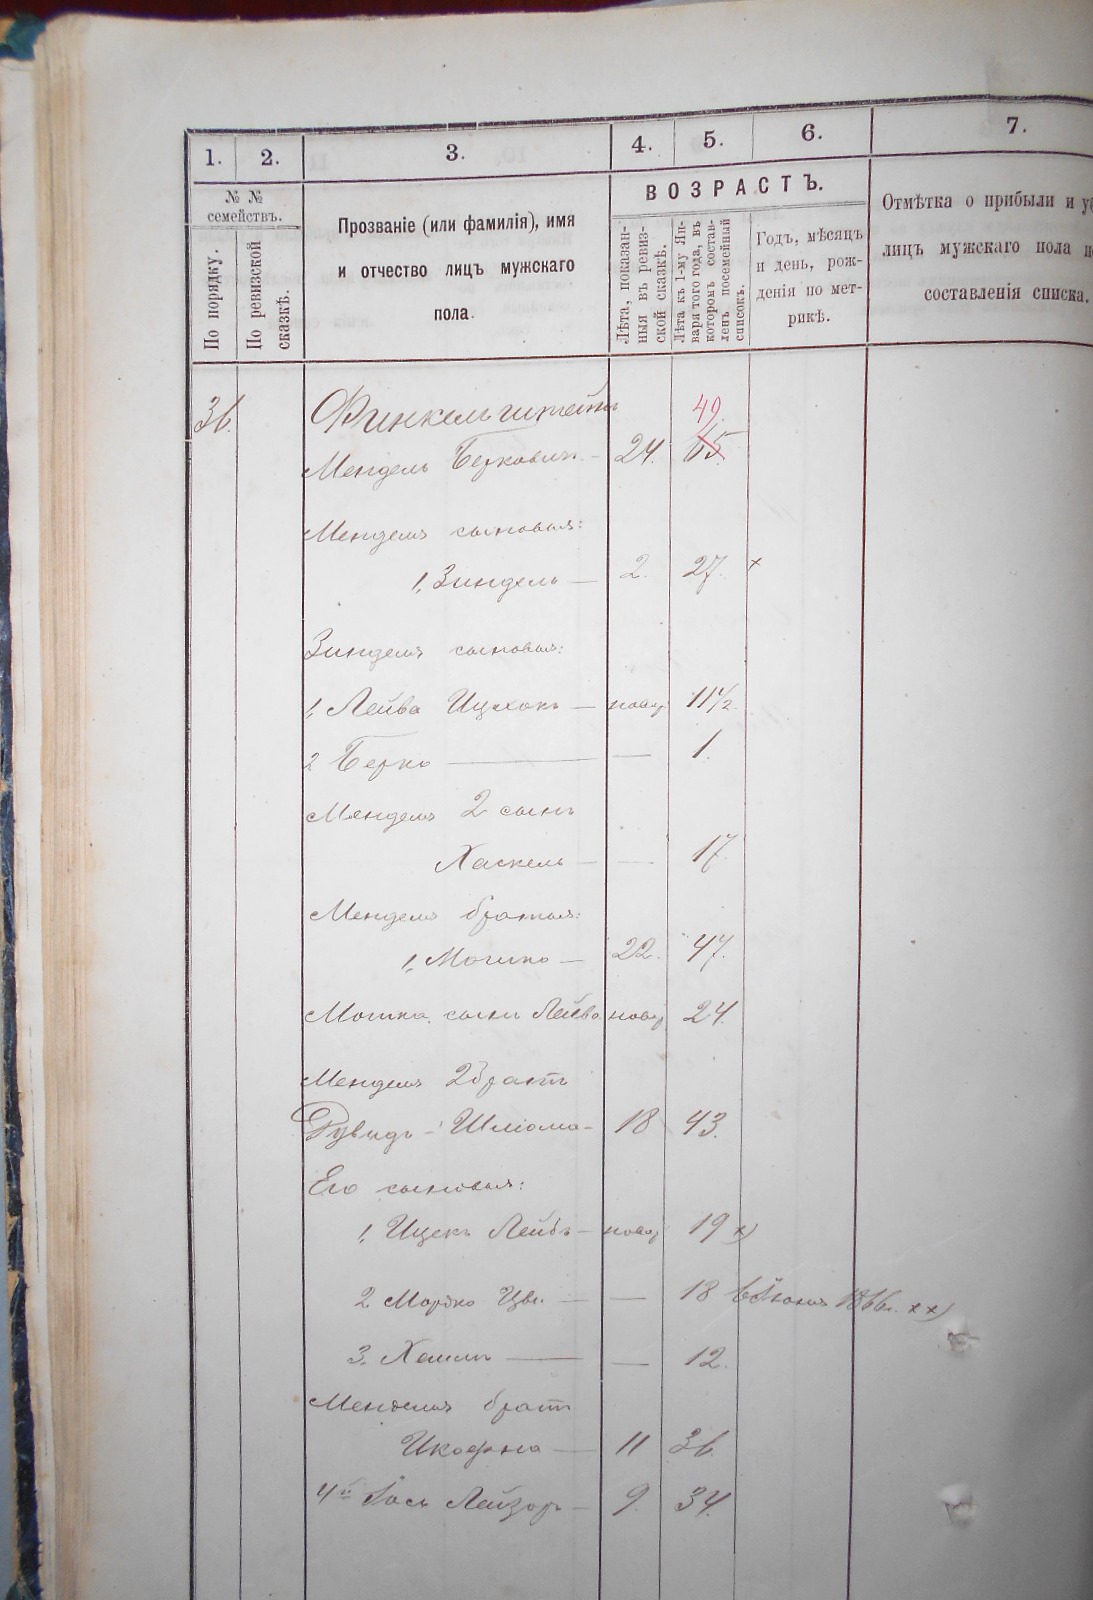 1. 2. 3. 4. 5. 6. 7.
№ № семействъ.
По порядку.
По ревизской сказкѣ.
Прозваніе (или фамилія), имя
и отчество лицъ мужскаго
пола.
ВОЗРАСТЪ.
Лѣта, показан-
ныя въ ревиз-
ской сказкѣ.
Лѣта къ 1-му Ян-
варя того года, въ
которомъ состав-
ленъ посемейный
списокъ.
Годъ, мѣсяцъ
и день, рож-
денія по мет-
рикѣ.
Отмѣтка о прибыли и у
лицъ мужскаго пола
составленія списка.
36. Финкельштейнъ 49.
Мендель Берковичъ — 24. 65.
Менделя сыновья:
1, Зиндель — 2. 27. x
Зинделя сыновья:
1, Лейба Ицхокъ — новор 11 1/2.
2 Берко — — 1.
Менделя 2 сынъ
Хаскель — — 17.
Менделя братья:
1, Мошко — 22. 47.
Мошка сынъ Лейба новор 24.
Менделя 2 братъ
Рувидъ - Шліома - 18 43.
Его сыновья:
1, Ицекъ Лейбъ — новор 19 x)
2 Мордко — — 18 1866г. xx)
3. — — 12.
Менделя братъ
— 11 36.
4й Іось Лейзоръ — 9. 34.